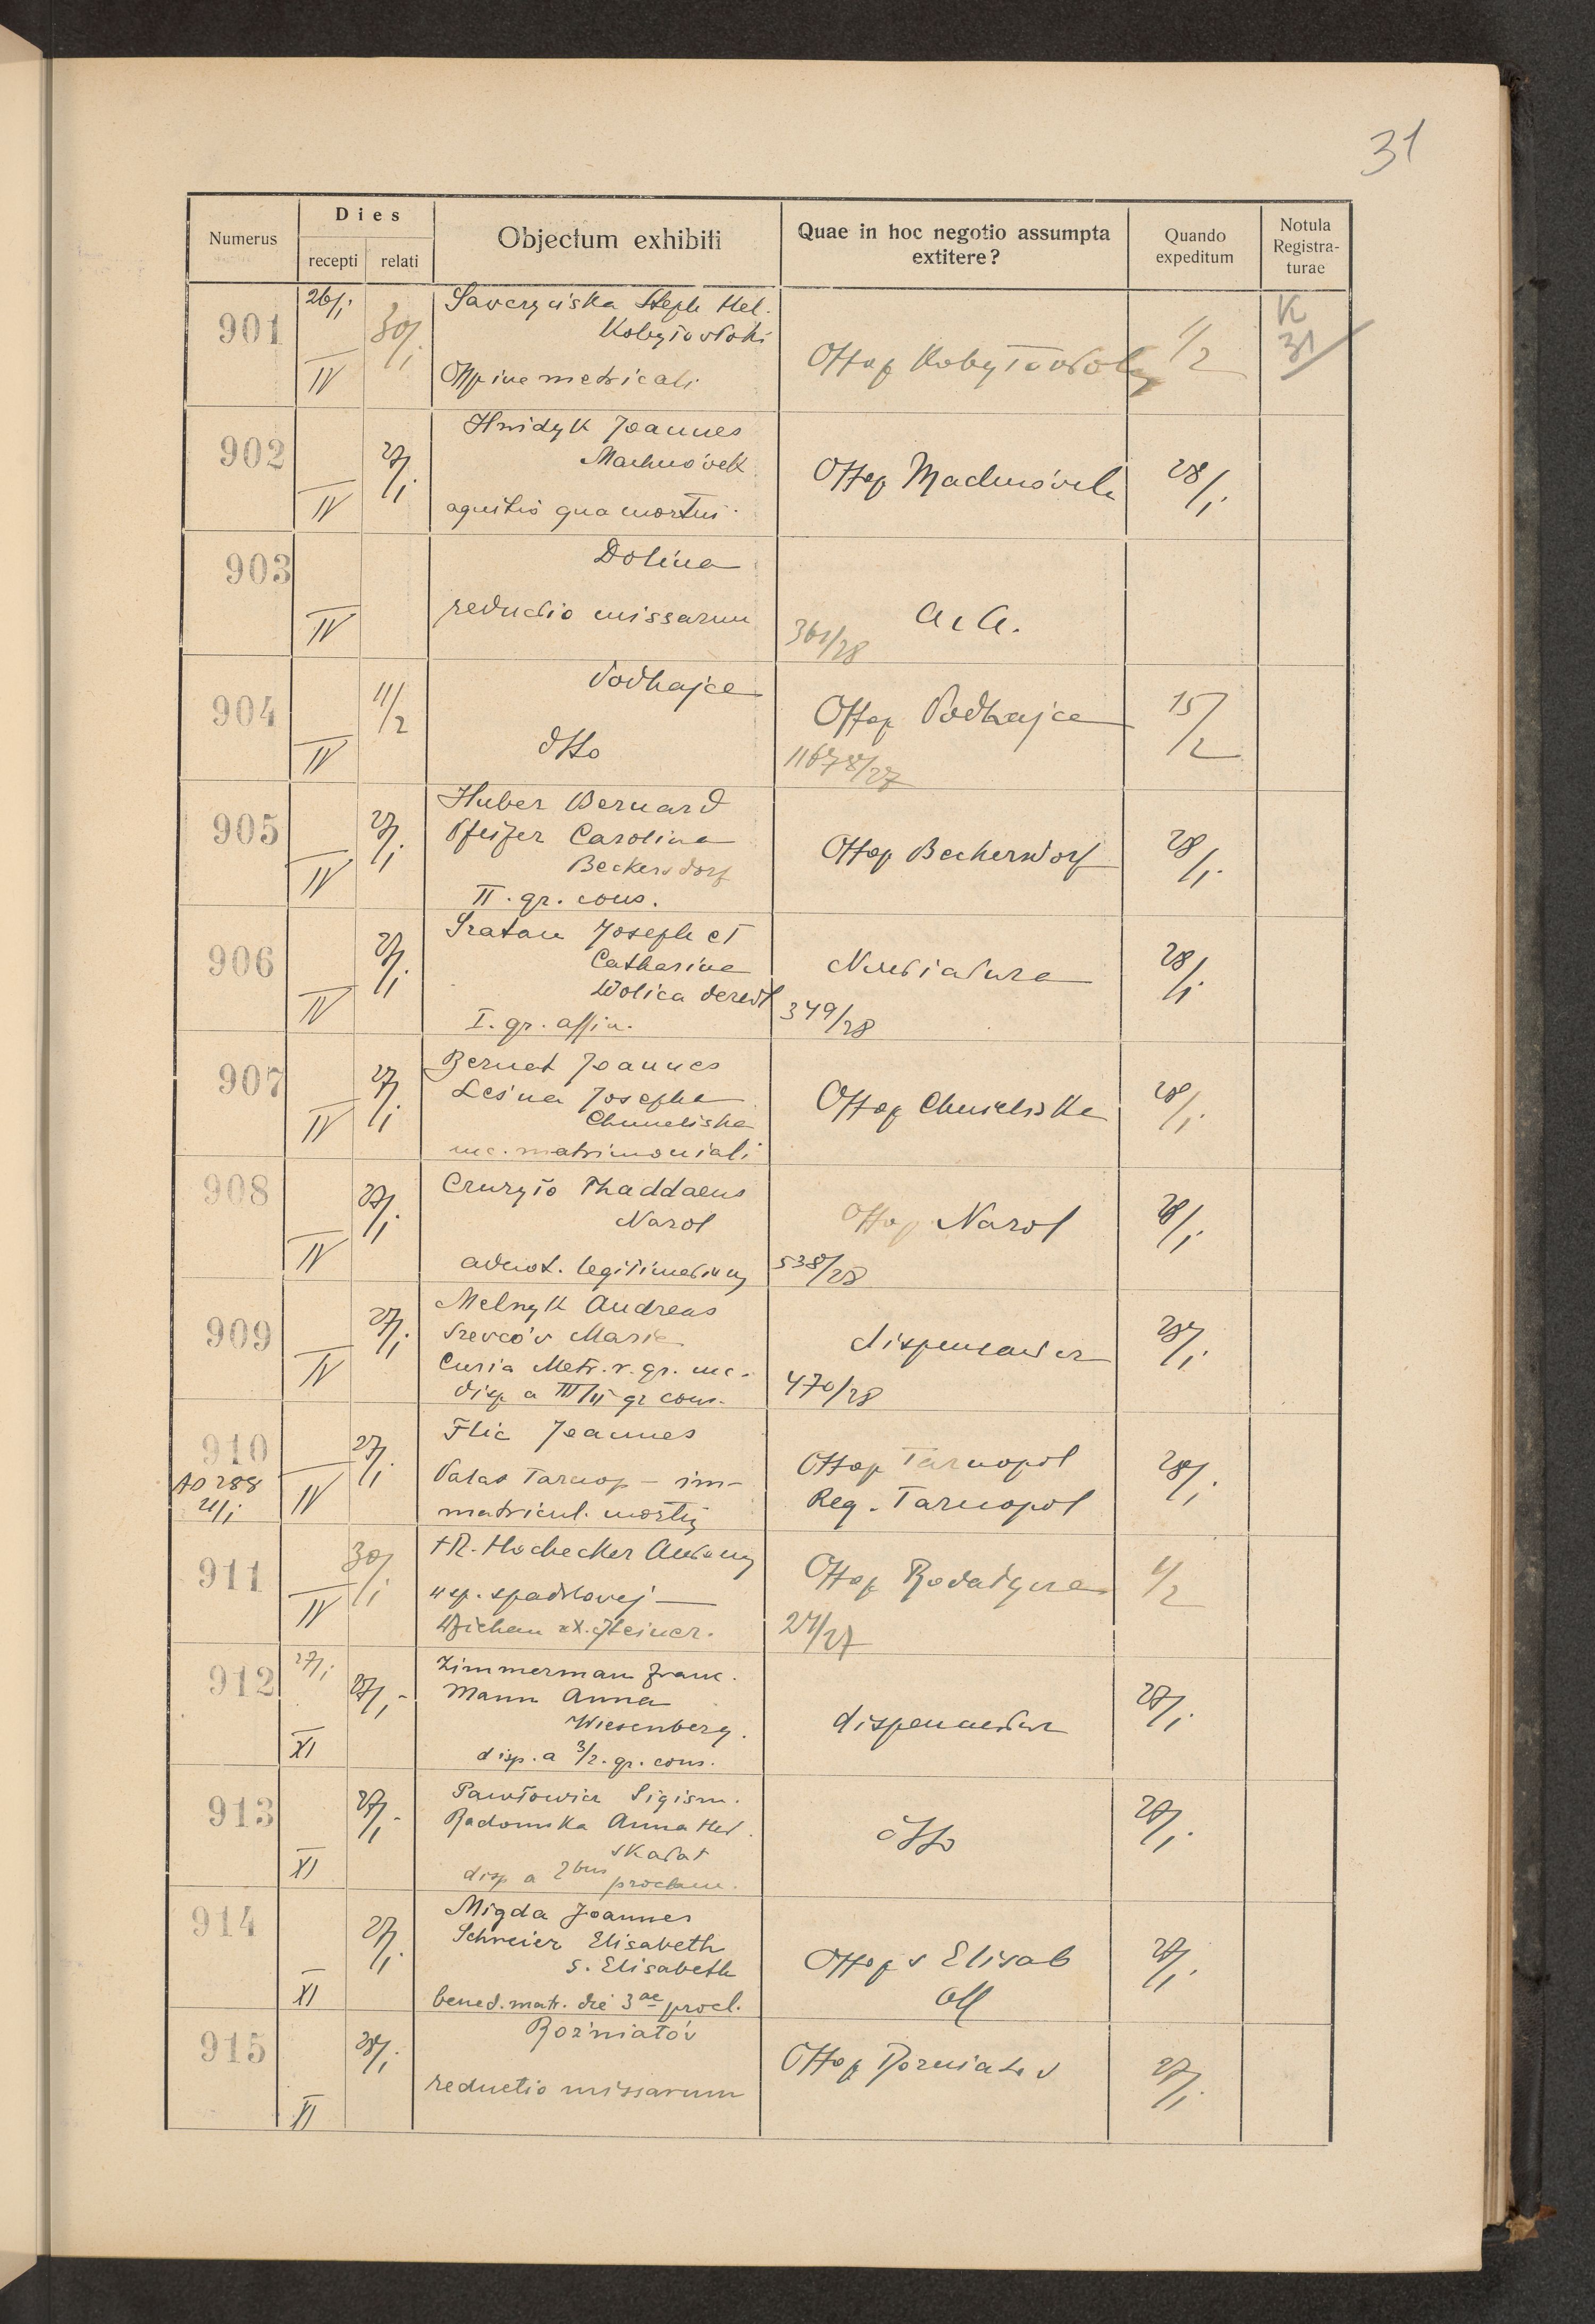 31
Numerus
Dies
recepti
relati
Objectum exhibiti
Quae in hoc negotio assumpta
extitere?
Quando
expeditum
Notula
Registra-
turae
901
26/I
IV
30/I
Steph Hel.
metricali
Offop
1/2
K
31
902
IV
27/I
Hnidyk Joannes
Machnówek
agnitio qua mortui
Offop Machnówek
28/I
903
IV
Dolina
reductio missarum
361/28
a. a.
904
IV
11/2
Podhajce
dtto
Offop Podhajce
11678/27
15/2
905
IV
27/I
Huber Bernard
Pfeifer Carolina
Beckersdorf
II. gr. cons.
Offop Beckersdorf
28/I
906
IV
27/I
Joseph et
Catharina
Wolica derewl
I. gr. affin.
Nuntiatura
349/28
28/I
907
IV
27/I
Bernat Joannes
Leśna Josepha
Chmieliska
nc. matrimoniali
Offop Chmieliska
28/I
908
IV
27/I
Thaddaeus
Narol
adnot. legitimationis
Offop Narol
538/28
28/I
909
IV
27/I
Melnyk Andreas
Szewców Maria
Curia Metr. r. gr. nc.
disp a III/II gr cons.
dispensatur
470/28
27/I
910
AD 288
21/I
IV
27/I
Flic Joannes
Palat Tarnop - im-
matricul. mortis
Offop Tarnopol
Reg. Tarnopol
28/I
911
IV
30/I
+R. Hochecker Antony
w sp. spadkowej
Wichen
Offop
27/27
1/2
912
27/I
XI
27/I
Zimmerman Franc.
Mann Anna
Wiesenberg.
disp. a 3/2. gr. cons.
dispensatur
27/I
913
XI
27/I
Pawłowicz Sigism.
Radomska Anna Hel.
Skałat
disp a 2bus proclam.
dtto
27/I
914
XI
27/I
Migda Joannes
Schneier Elisabeth
S. Elisabeth
bened. matr. die 3ae procl.
Offop s Elisab
27/I
915
XI
27/I
Rożniatów
reductio missarum
Offop Rozniatow
27/I